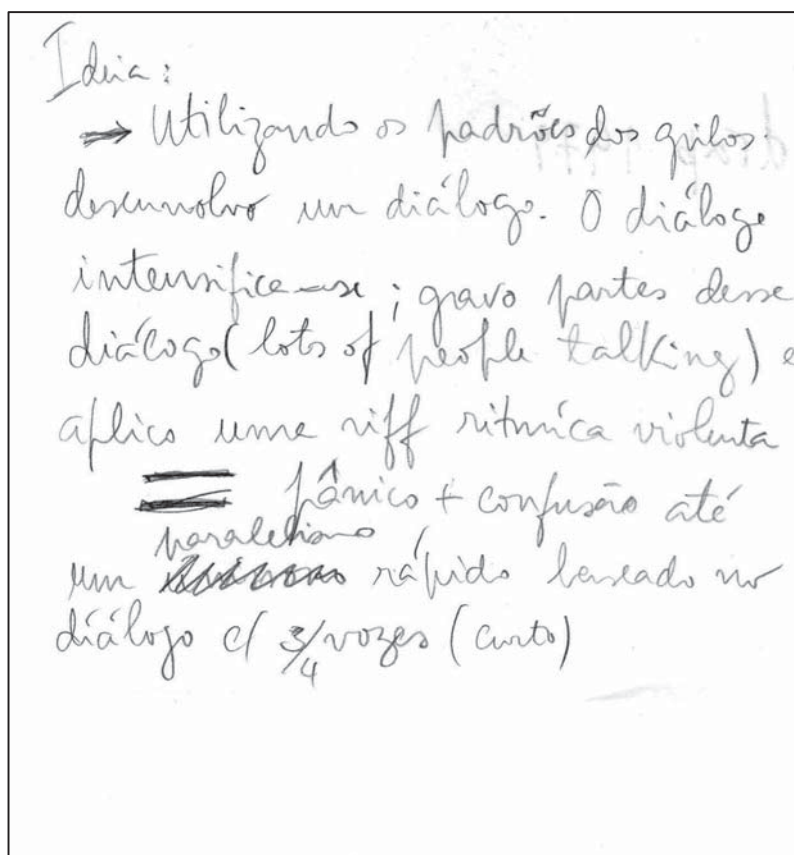 Ideia:
→ Utilizando os padrões dos grilos
desenvolvo um diálogo. O diálogo
intensifica-se ; gravo partes desse
diálogo (lots of people talking) e
aplico uma riff rítmica violenta
= pânico + confusão até
paralelismo
um rápido baseado no
diálogo c/ 3/4 vozes (curto)